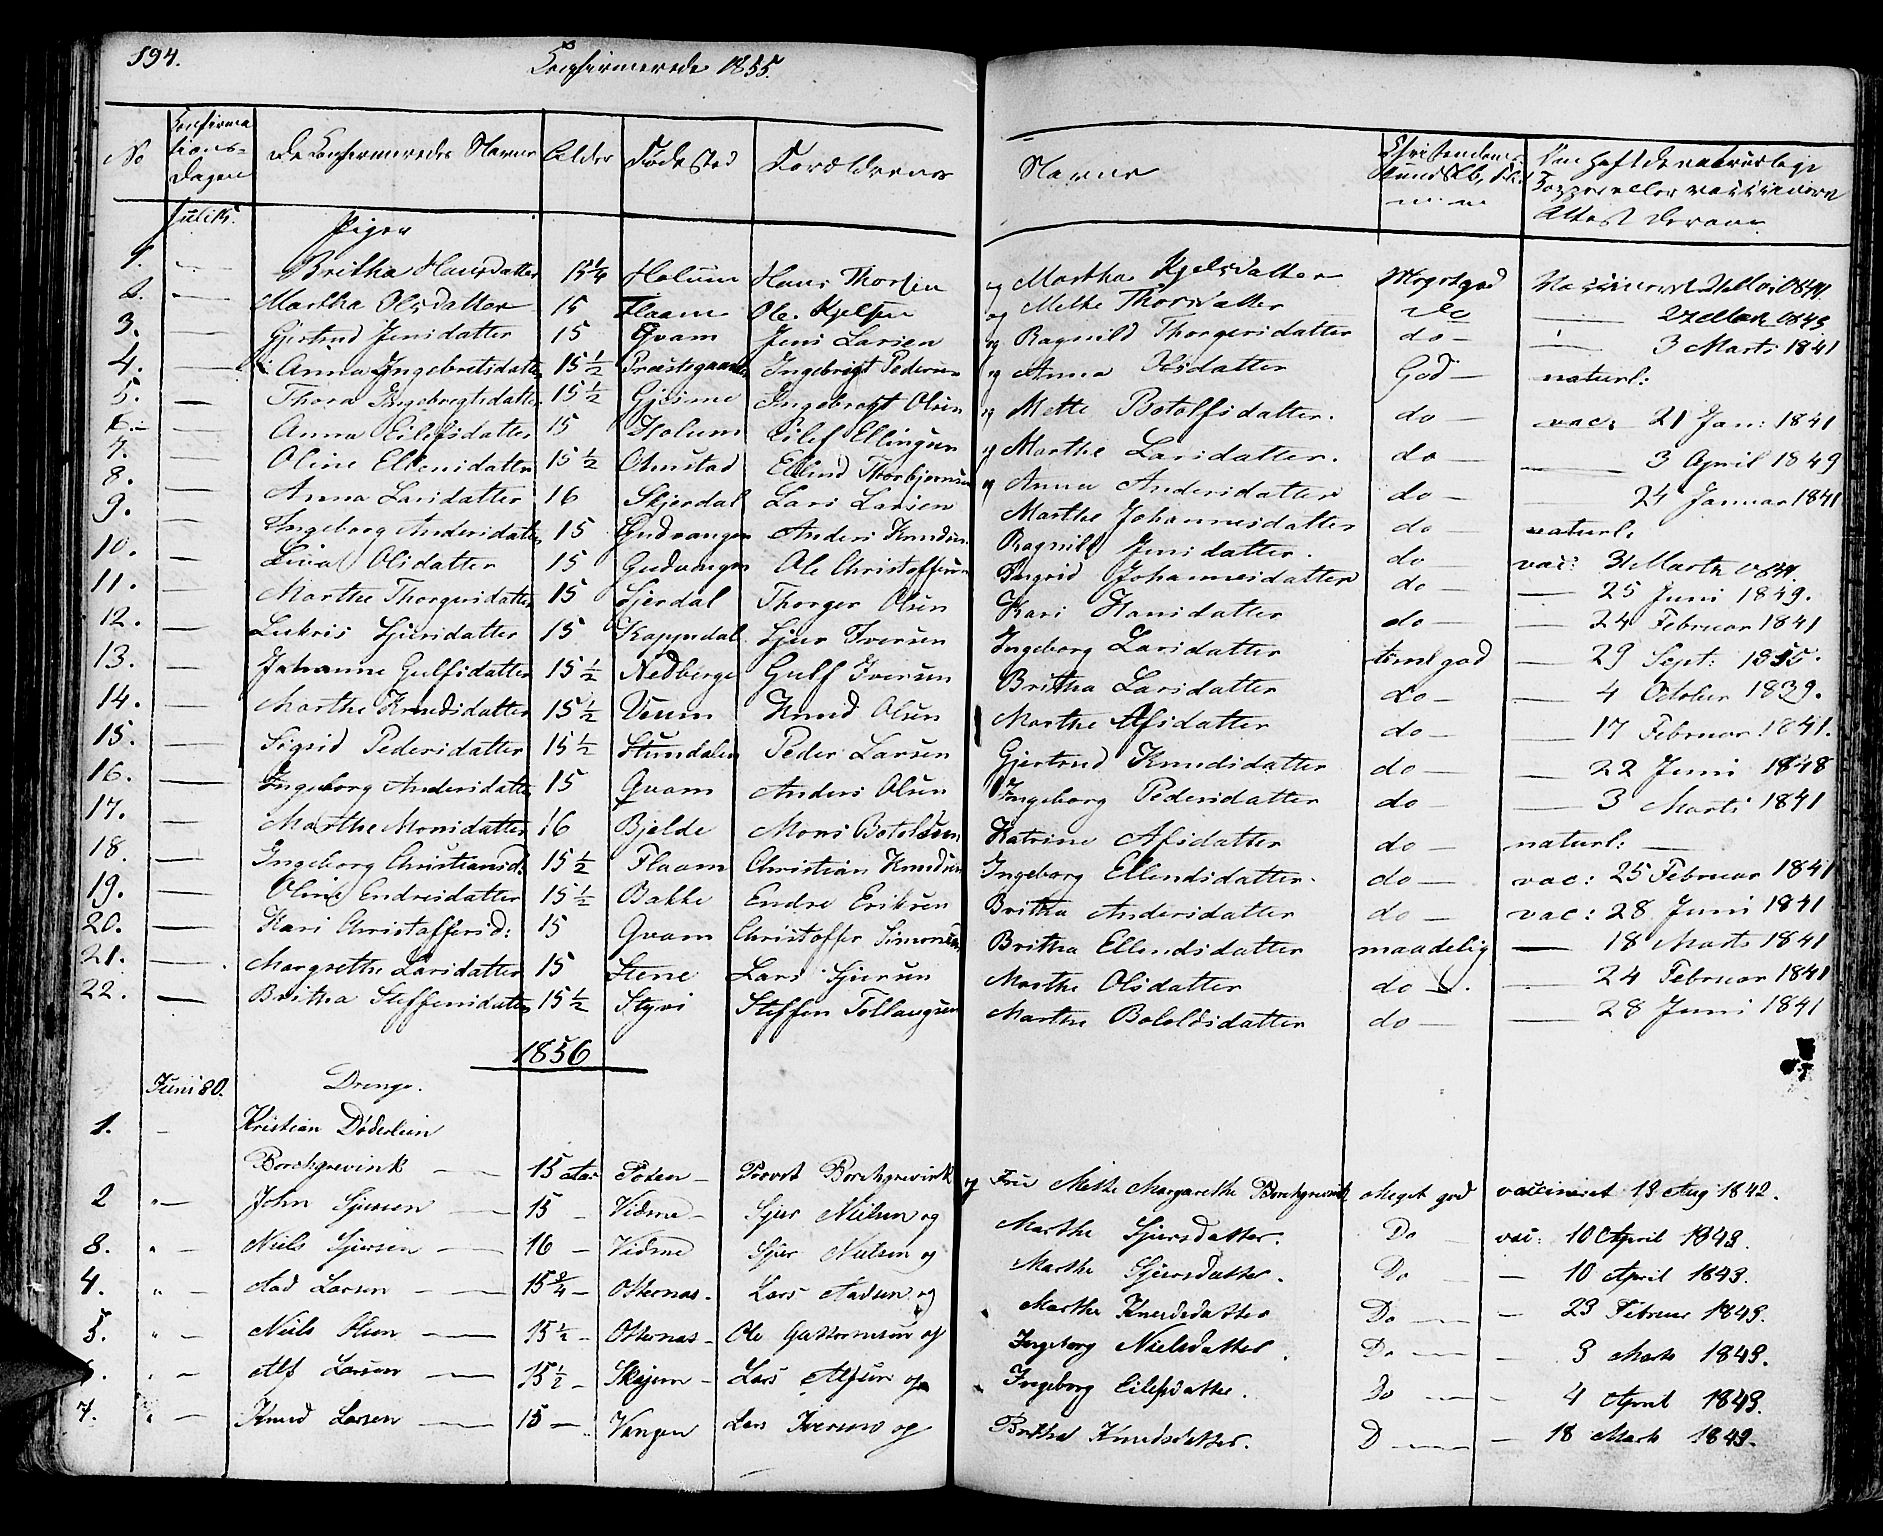 194.
Confirmerede 1855.
No Confirmations-Dagen De Confirmeredes Navne Alder Fødested Forældrenes Navne
Juli 15. Piger
1. — Britha Hansdatter 15 1/4 Holum Hans Thorsen og Martha Kjelsdatter Meget god
2. — Martha Olsdatter 15 Flaam Ole Kjelsen og Mette Thorsdatter do
3. — Gjertrud Jensdatter 15 Qvam Jens Larsen og Ragnild Thorgersdatter do — — 3 Marts 1841
4. — Anna Ingebretsdatter 15 1/2 Præstegaarden Ingebrigt Pedersen og Anna Olsdatter God — naturl:
5. — Thora Ingebregtsdatter 15 1/2 Gjesme Ingebregt Olsen og Mette Botolfsdatter. do — vac: 21 Jan: 1841
6. — Anna Eilefsdatter 15 Holum Eilef Ellingsen og Marthe Larsdatter. do — — 3 April 1849
7. — Oline Ellensdatter 15 1/2 Onstad Ellend Thorbjørnsen og Anna Andersdatter do — — 24 Januar 1841
8. — Anna Larsdatter 16 Skjerdal Lars Larsen Marthe Johannesdatter do — naturl.
9. — Ingeborg Andersdatter 15 Gudvangen Anders Knudsen Ragnild Jensdatter. do vac:
10. — Livat Olsdatter 15 Gudvangen Ole Christoffersen Ingrid Johannesdatter do — — 25 Juni 1849.
11. — Marthe Thorgersdatter 15 Sjerdal Thorger Olsen Kari Hansdatter do — — 24 Februar 1841
12. — Lukris Sjursdatter 15 Kappadal Sjur Iversen Ingeborg Larsdatter temel god — 29 Sept: 1855.
13. — Johanne Gulfsdatter 15 1/2 Nedberge Gulf Iversen Britha Larsdatter do — — 4 October 1839.
14. — Marthe Knudsdatter 15 1/2 Veum Knud Olsen Marthe Afsdatter do — — 17 Februar 1841.
15. — Sigrid Pedersdatter 15 1/2 Stundalen Peder Larsen Gjertrud Knudsdatter do — — 22 Juni 1848
16. — Ingeborg Andersdatter 15 Qvam Anders Olsen Ingeborg Pedersdatter do — — 3 Marts 1841
17. — Marthe Monsdatter 16 Bjelde Mons Botolfsen Katrine Afsdatter do — naturl: —
18. — Ingeborg Christiansd: 15 1/2 Flaam Christian Knudsen Ingeborg Ellendsdatter. do — vac: 25 Februar 1841
19. — Oline Endresdatter 15 1/2 Bakke Endre Eriksen Britha Andersdatter do — vac: 28 Juni 1841
20. — Kari Christoffersd: 15 Qvam Christoffer Simonsen Britha Ellendsdatter maadelig — 18 Marts 1841
21. — Margrethe Larsdatter 15 Stene Lars Sjursen Marthe Olsdatter do — — 24 Februar 1841
22. — Britha Steffensdatter 15 1/2 Styvi Steffen Tollaugsen Marthe Botolfsdatter do — — 28 Juni 1841
1856
Juni 30. Drenge.
1. — Kristian Døderlein
Borchgrevink — 15 Aar Posen — Provst Borchgrevink og Frue Mette Margarethe Borchgrevink Meget god vaccineret 13 Aug 1842.
2 „ — John Sjursen — 15 — Vidme — Sjur Nielsen og Marthe Sjursdatter. Do — vac: 10 April 1843.
3. „ — Niels Sjursen — 16 — Vidme Sjur Nielsen og Marthe Sjursdatter. Do — — 10 April 1843.
4. „ — Aad Larsen — 15 3/4 — Otternæs. Lars Aadsen og Marthe Knudsdatter Do — — 23 Februar 1843.
5. „ — Niels Olsen — 15 1/2 — Otternæs — Ole Guttormsen og Ingeborg Nielsdatter. Do — — 3 Marts 1843.
6. „ — Alf Larsen — 15 1/2 — Skjerm — Lars Alfsen og Ingeborg Eilefsdatter. Do — — 4 April 1843.
7. „ — Knud Larsen — 15 — Vangen Lars Iversen og Britha Knudsdatter. D — — 18 Marts 1843.